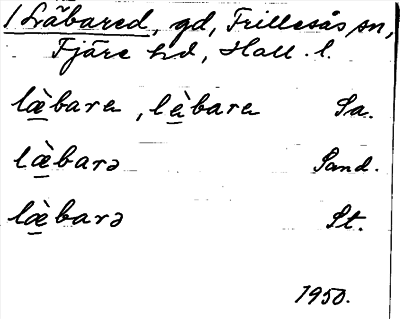 1 Läbared, gd, Frillesås sn,
Fjäre hd, Hall. l.
læ̀baren, lèbaren Sa.
læ̀barə Sand.
læ̀barə St.
1950.